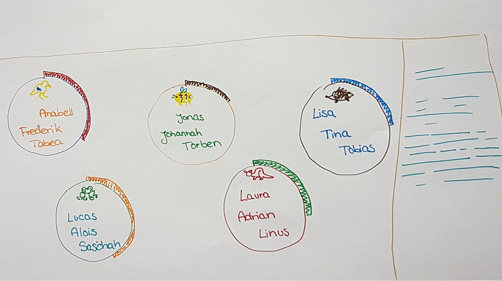 Anabell
Frederik
Tabea
Jonas
Johannah
Torben
Lisa
Tina
Tobias
Lucas
Alois
Saschah
Laura
Adrian
Linus